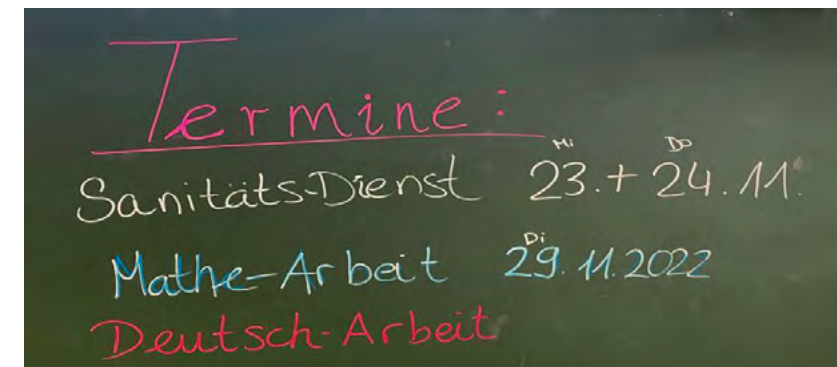 Termine:
Mi Do
Sanitäts-Dienst 23.+ 24.11.
Di
Mathe-Arbeit 29.11.2022
Deutsch-Arbeit